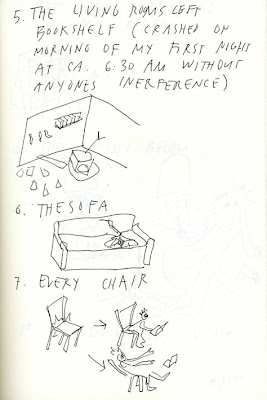 5. THE LIVING ROOMS LEFT
BOOKSHELF (CRASHED ON
MORNING OF MY FIRST NIGHT
AT CA. 6:30 AM WITHOUT
ANYONES INERFERENCE)
6. THE SOFA
7. EVERY CHAIR